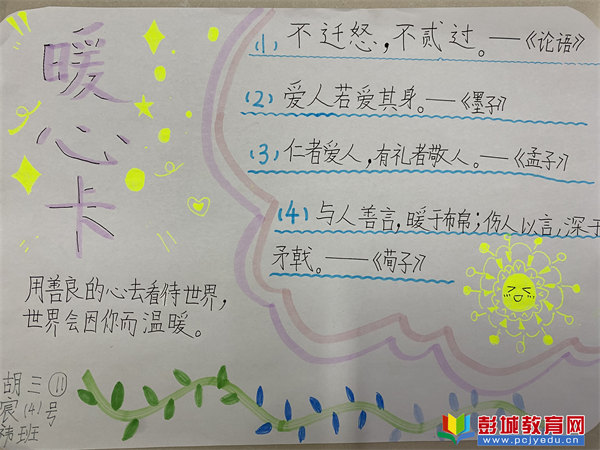 暖心卡
(1) 不迁怒，不贰过。——《论语》
(2) 爱人若爱其身。——《墨子》
(3) 仁者爱人，有礼者敬人。——《孟子》
(4) 与人善言，暖于布帛；伤人以言，深于
矛戟。——《荀子》
用善良的心去看待世界，
世界会因你而温暖。
三(4)班
11号
胡宸
彭城教育网
www.pcjyedu.cn